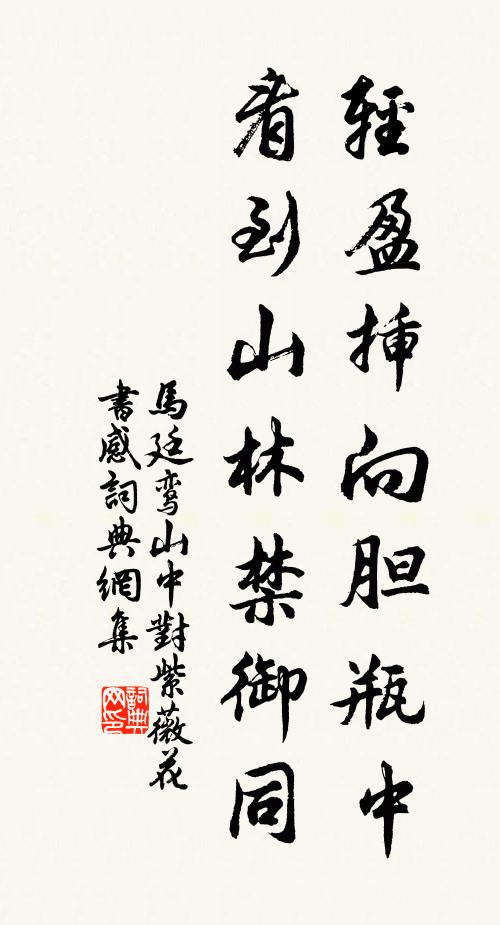 輕盈揷向胆瓶中
看到山林禁御同
馬廷鸾山中對紫薇花
書感詞典網集
詞典网印